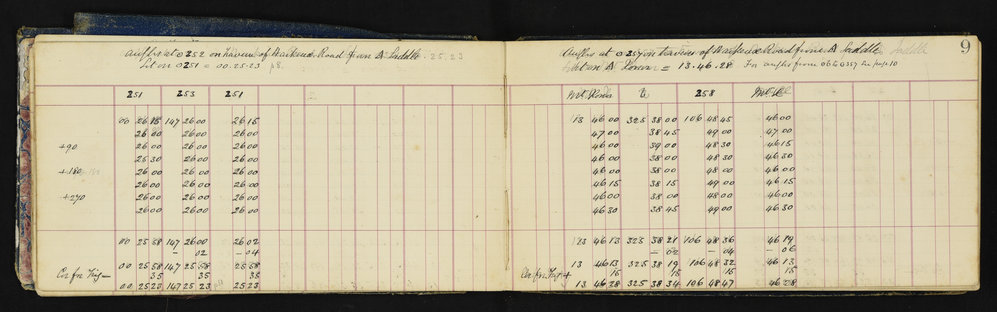 Angles at 0252 on traverse of Road from Δ Saddle
Set on 0251 = 00.25.23 p8.
251 253 251
00 26 15 147 26 00 26 15
26 00 26 00 26 00
+90 26 00 26 00 26 00
25 30 26 00 26 00
+180 26 00 26 00 26 00
26 00 26 00 26 00
+270 26 00 26 00 26 00
26 00 26 00 26 00
00 25 58 147 26 00 26 02
– 02 – 04
00 25 58 147 25 58 25 58
Cor for Trig – 35 35 35
00 25 23 147 25 23 25 23
9
Angles at 0257 on traverse of Road from Δ Saddle
Set on Δ = 13.46.28 For angles from to 0357 see page 10
258
13 46 00 325 38 00 106 48 45 46 00
47 00 38 45 49 00 47 00
46 00 39 00 48 30 46 15
46 00 38 00 48 30 46 30
46 00 38 00 48 00 46 00
46 15 38 15 49 00 46 15
46 00 38 00 48 00 46 00
46 30 38 45 49 00 46 30
13 46 13 325 38 21 106 48 36 46 19
– 02 – 04 – 06
13 46 13 325 38 19 106 48 32 46 13
Cor for Trig + 15 15 15 15
13 46 28 325 38 34 106 48 47 46 28